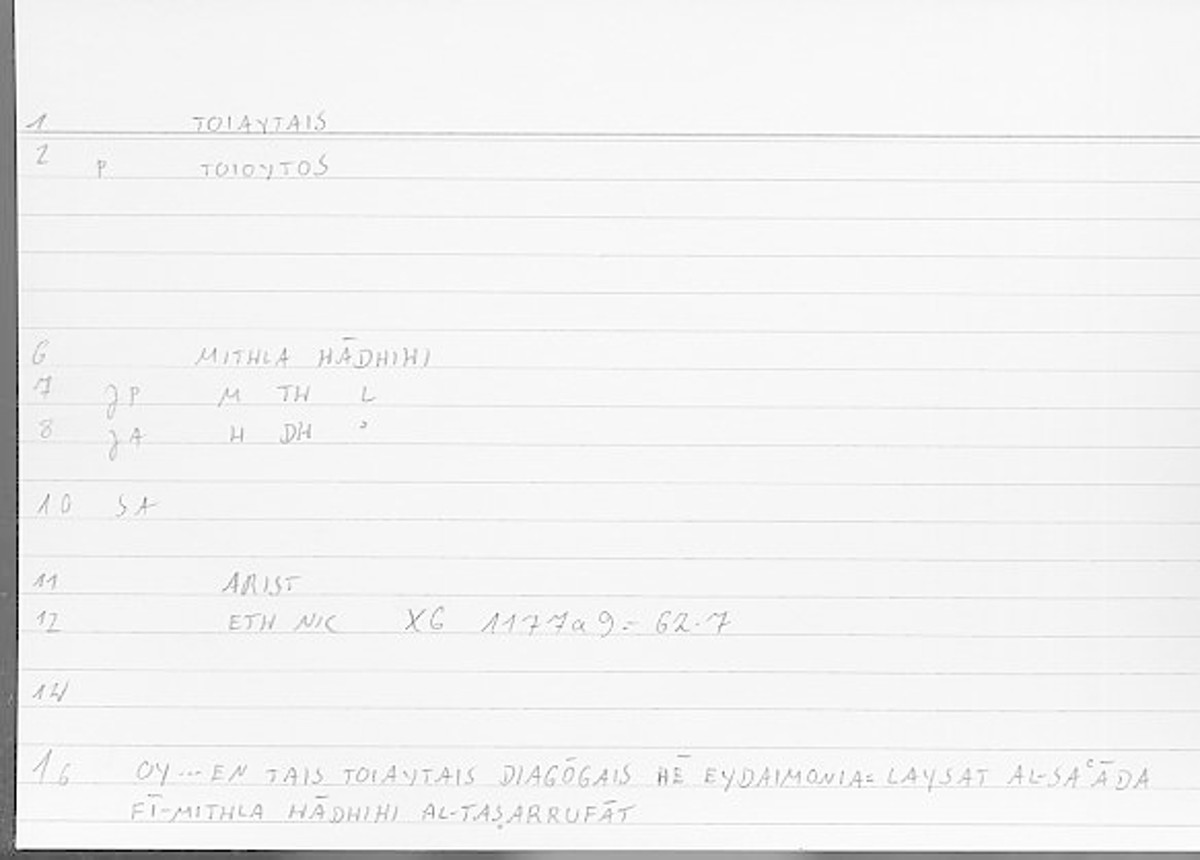 1 TOIAYTAIS
2 P TOIOYTOS
6 MITHLA HĀDHIHI
7 JP M TH L
8 JA H DH ʾ
10 SA
11 ARIST
12 ETH NIC X6 1177a9 = 62.7
14
16 OY...EN TAIS TOIAYTAIS DIAGŌGAIS HĒ EYDAIMONIA = LAYSAT AL-SAʿĀDA
FĪ-MITHLA HĀDHIHI AL-TAṢARRUFĀT